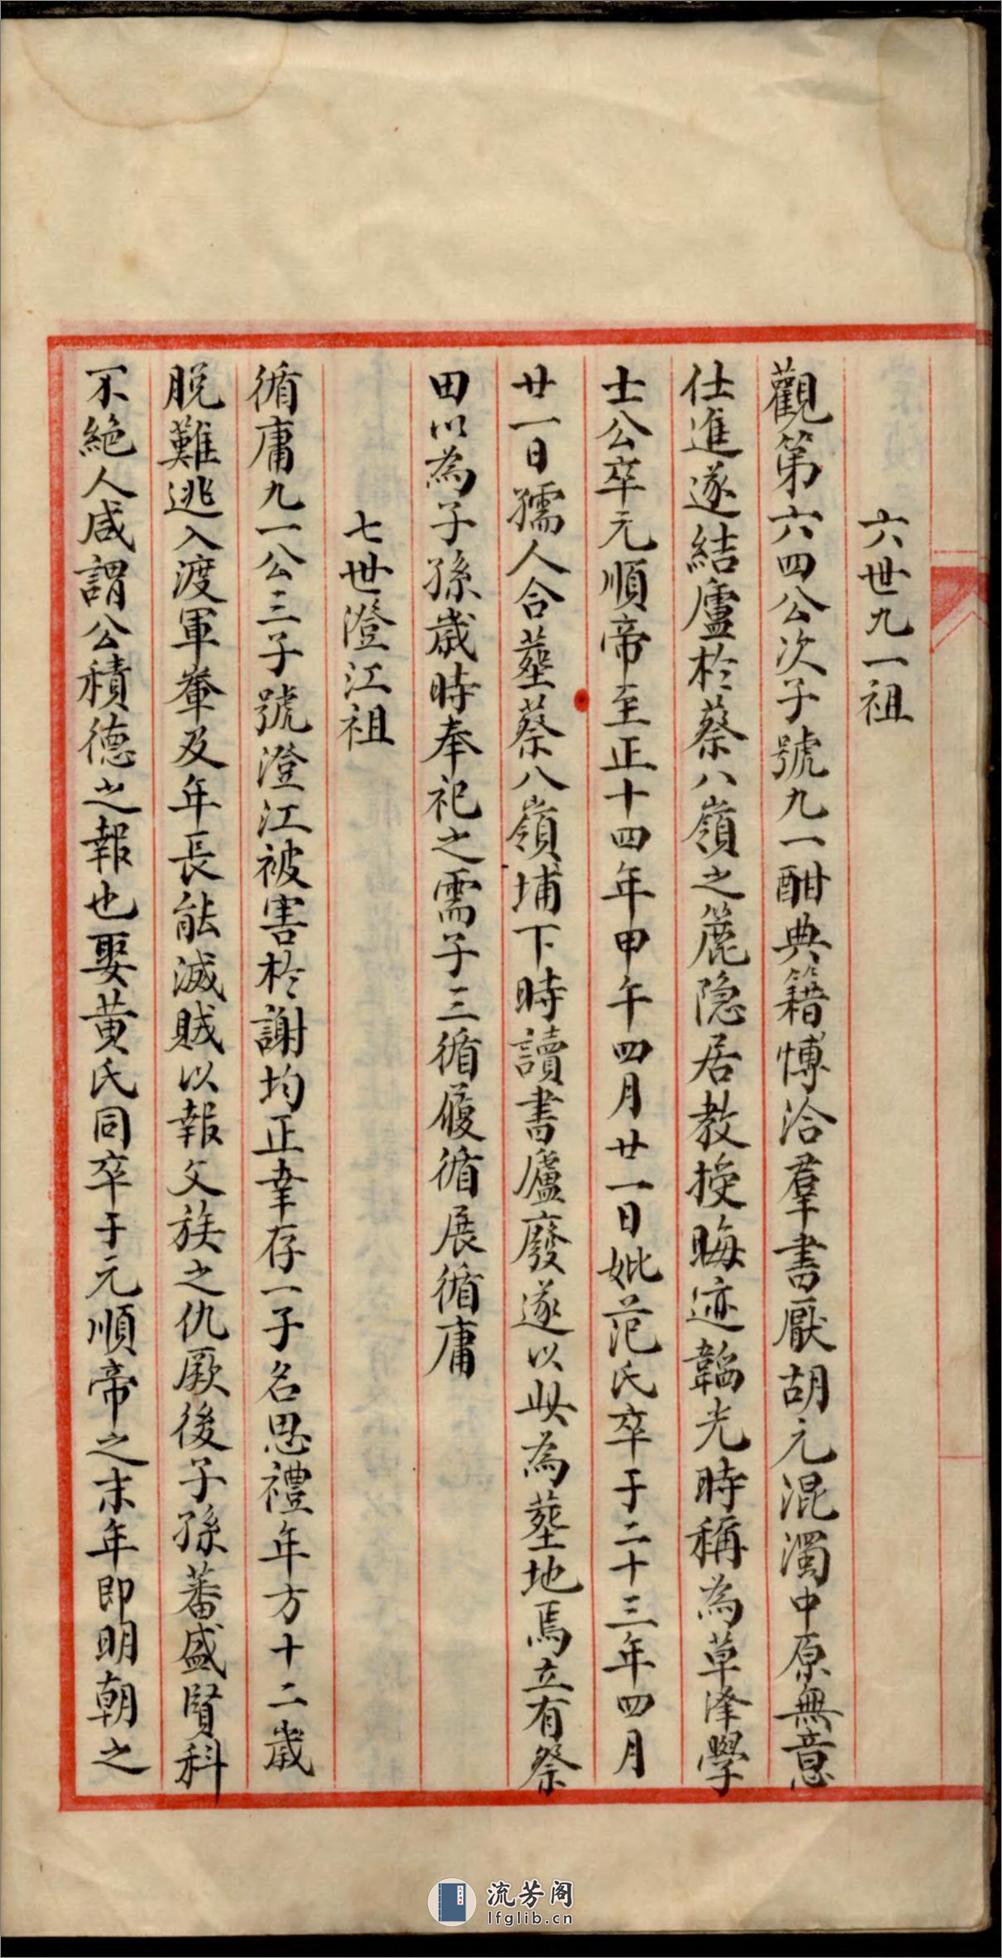 六世九一祖
觀第六四公次子號九一酣典籍博洽羣書厭胡元混濁中原無意
仕進遂結廬於蔡八嶺之麓隐居教授晦迹韜光時稱為草澤學
士公卒元順帝至正十四年甲午四月廿一日妣范氏卒于二十三年四月
廿一日孺人合塟蔡八嶺埔下時讀書廬廢遂以此為塟地焉立有祭
田以為子孫歲時奉祀之需子三循履循展循庸
七世澄江祖
循庸九一公三子號澄江被害於謝均正幸存一子名思禮年方十二歲
脫難逃入渡軍輋及年長能滅賊以報父族之仇厥後子孫蕃盛賢科
不絕人咸謂公積德之報也娶黃氏同卒于元順帝之末年即明朝之
流芳阁
lfglib.cn